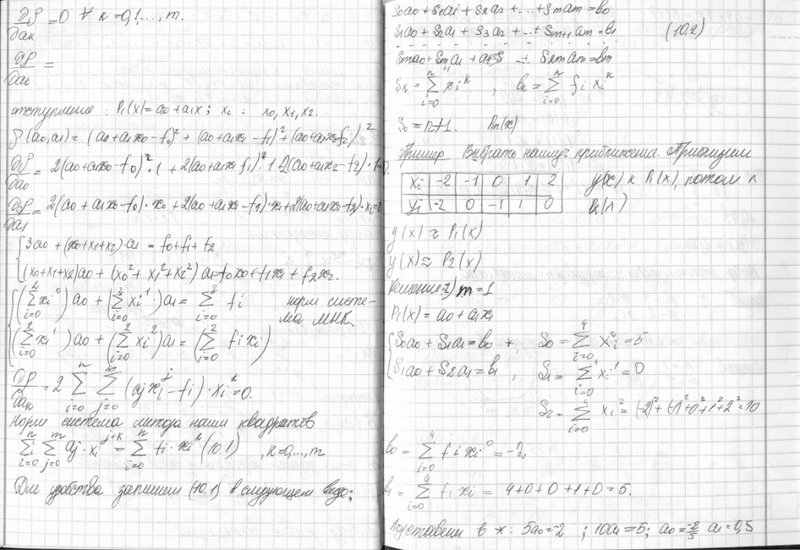 ∂ρ/∂aκ = 0 ∀ κ = 0,1,...,m.
∂ρ/∂aκ =
отступление: P₁(x) = a₀ + a₁x; xᵢ : x₀, x₁, x₂.
ρ(a₀,a₁) = (a₀+a₁x₀-f₀)² + (a₀+a₁x₁-f₁)² + (a₀+a₁x₂-f₂)²
∂ρ/∂a₀ = 2(a₀+a₁x₀-f₀)·1 + 2(a₀+a₁x₁-f₁)·1 + 2(a₀+a₁x₂-f₂)·1=0
∂ρ/∂a₁ = 2(a₀+a₁x₀-f₀)·x₀ + 2(a₀+a₁x₁-f₁)·x₁ + 2(a₀+a₁x₂-f₂)·x₂=0
{3a₀ + (x₀+x₁+x₂)a₁ = f₀+f₁+f₂
(x₀+x₁+x₂)a₀ + (x₀²+x₁²+x₂²)a₁ = f₀x₀+f₁x₁+f₂x₂.
{(∑ᵢ₌₀² xᵢ⁰)a₀ + (∑ᵢ₌₀² xᵢ¹)a₁ = ∑ᵢ₌₀² fᵢ норм систе-
ма МНК.
(∑ᵢ₌₀² xᵢ¹)a₀ + (∑ᵢ₌₀² xᵢ²)a₁ = (∑ᵢ₌₀² fᵢxᵢ)
∂ρ/∂aκ = 2 ∑ᵢ₌₀ⁿ ∑ⱼ₌₀ᵐ (aⱼxᵢʲ - fᵢ)·xᵢᵏ = 0.
Норм система метода наим квадратов
∑ᵢ₌₀ⁿ ∑ⱼ₌₀ᵐ aⱼ·xᵢʲ⁺ᵏ = ∑ᵢ₌₀ⁿ fᵢ·xᵢᵏ (10.1) , κ=0,...,m
Для удобства запишем (10.1) в следующем виде:
S₀a₀ + S₁a₁ + S₂a₂ + ... + Sₘaₘ = b₀
S₁a₀ + S₂a₁ + S₃a₂ + ... + Sₘ₊₁aₘ = b₁ (10.2)
Sₘa₀ + Sₘ₊₁a₁ + ... + S₂ₘaₘ = bₘ
Sκ = ∑ᵢ₌₀ⁿ xᵢᵏ , bκ = ∑ᵢ₌₀ⁿ fᵢxᵢᵏ
S₀ = n+1. Pₘ(x)
Пример Выбрать наилуч приближение.
xᵢ -2 -1 0 1 2 y(x) к P₁(x), потом к
yᵢ -2 0 -1 1 0 P₂(x)
y(x) ≈ P₁(x)
y(x) ≈ P₂(x)
Решение: 1) m=1
P₁(x) = a₀ + a₁x
{S₀a₀ + S₁a₁ = b₀ *, S₀ = ∑ᵢ₌₀⁴ xᵢ⁰ = 5
S₁a₀ + S₂a₁ = b₁ , S₁ = ∑ᵢ₌₀⁴ xᵢ¹ = 0
S₂ = ∑ᵢ₌₀⁴ xᵢ² = (-2)²+(-1)²+0²+1²+2²=10
b₀ = ∑ᵢ₌₀⁴ fᵢxᵢ⁰ = -2
b₁ = ∑ᵢ₌₀⁴ fᵢxᵢ = 4+0+0+1+0 = 5.
Подставим в *: 5a₀=-2 ; 10a₁=5; a₀=-2/5 a₁=0,5